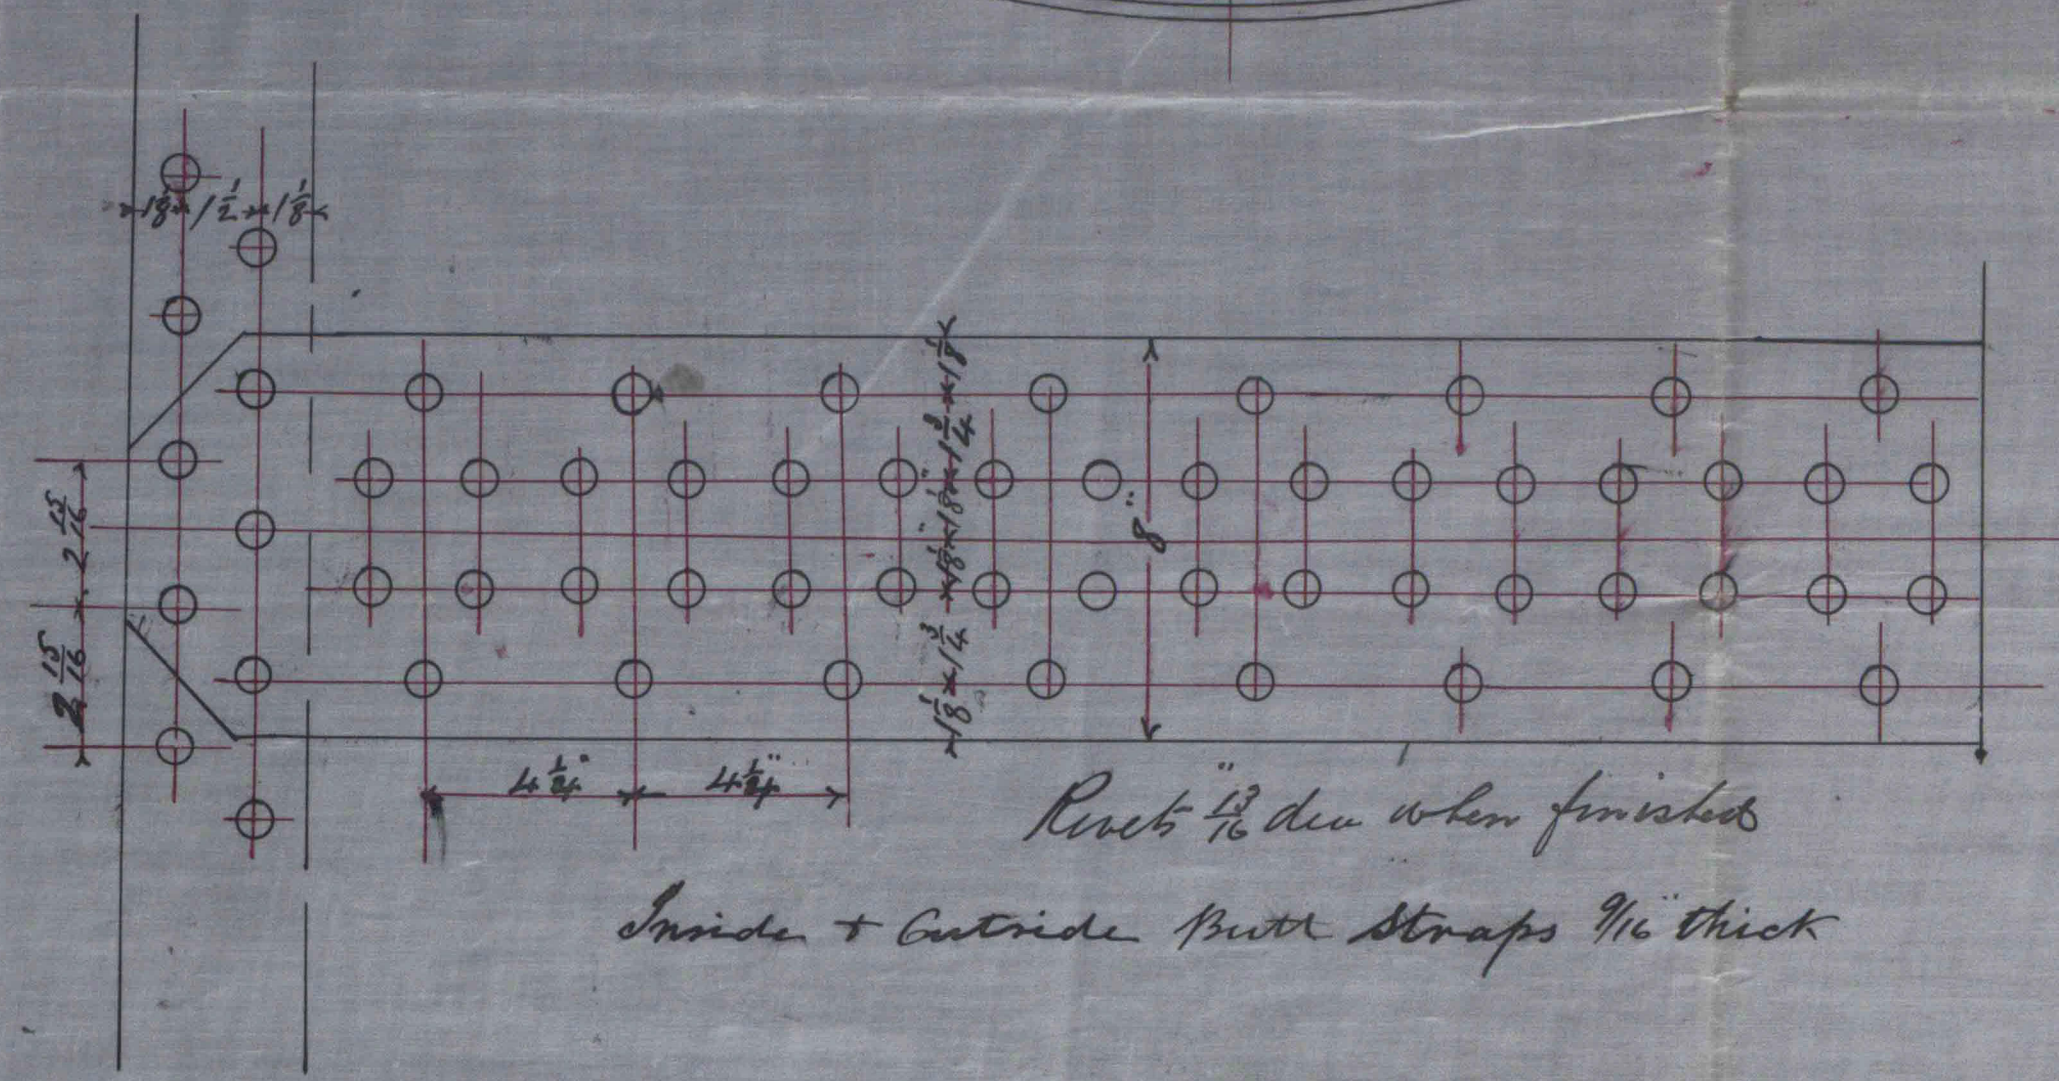 1 1/8 1 1/2 1 1/8
2 15/16 × 2 15/16
1 1/8 × 1 3/4 × 1 1/8" × 1 1/8" × 1 3/4 × 1 1/8
8"
4 1/4" 4 1/4"
Rivets 13/16" dia when finished
Inside + Outside Butt Straps 9/16" thick